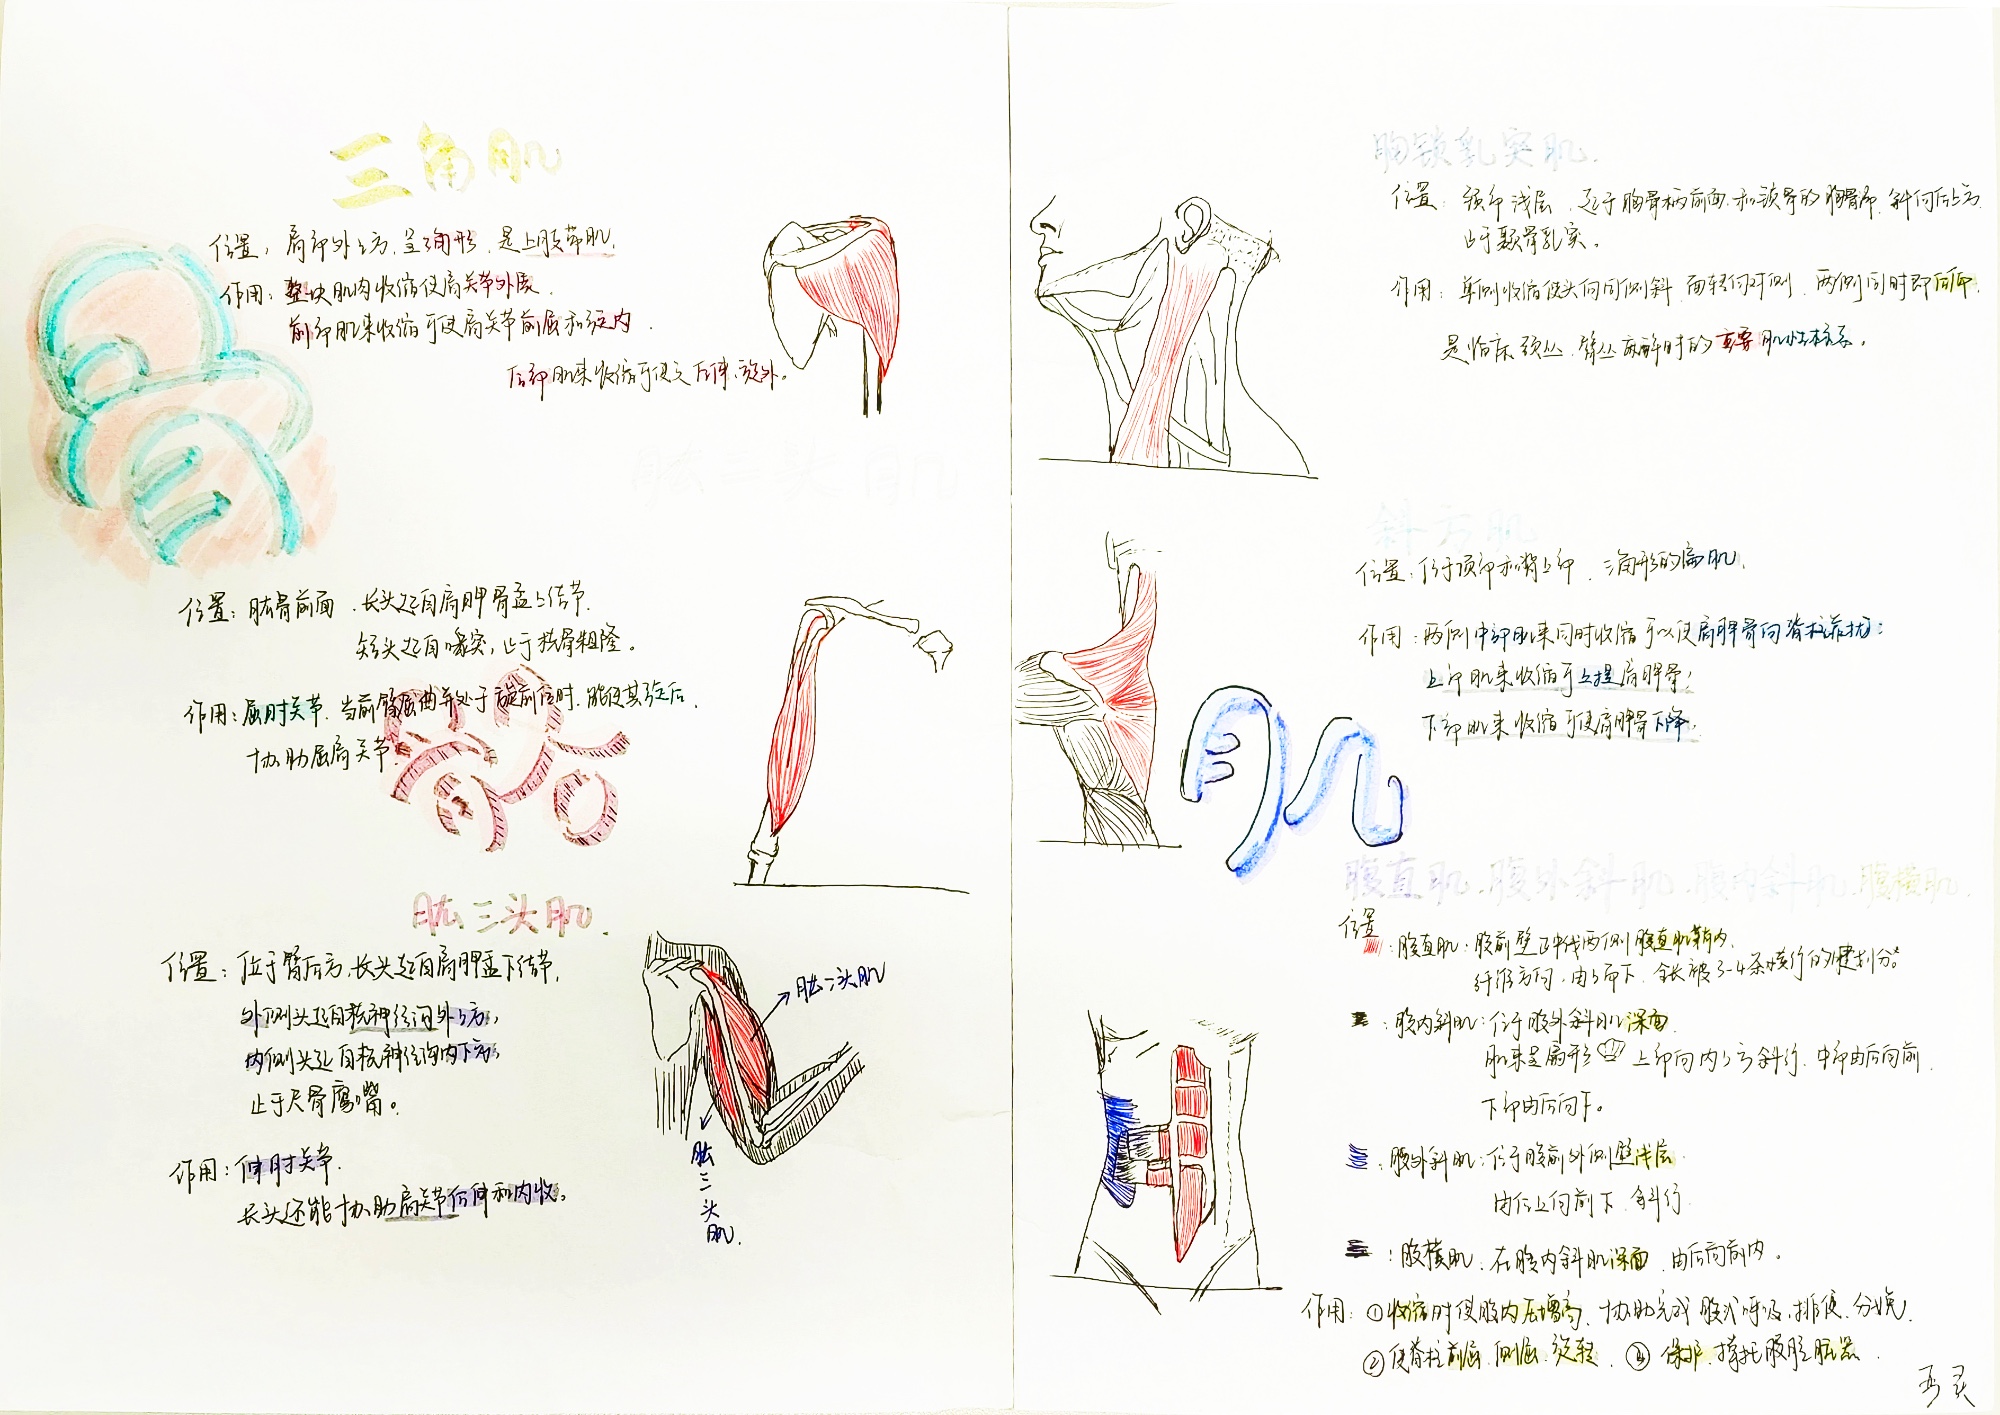 三角肌
位置：肩部外上方，呈三角形，是上肢带肌，
作用：整块肌肉收缩使肩关节外展，
前部肌束收缩可使肩关节前屈和旋内，
后部肌束收缩可使之后伸、旋外。
肱二头肌
位置：肱骨前面，长头起自肩胛骨盂上结节，
短头起自喙突，止于桡骨粗隆。
作用：屈肘关节，当前臂屈曲并处于旋前位时，能使其旋后，
协助屈肩关节。
肱三头肌
位置：位于臂后方，长头起自肩胛盂下结节，
外侧头起自桡神经沟外上方，
内侧头起自桡神经沟内下方，
止于尺骨鹰嘴。
作用：伸肘关节，
长头还能协助肩关节后伸和内收。
肱二头肌
肱三头肌
胸锁乳突肌
位置：颈部浅层，起于胸骨柄前面和锁骨的胸骨端，斜向后上方
止于颞骨乳突。
作用：单侧收缩使头向同侧斜，面转向对侧，两侧同时即后仰，
是临床颈丛、臂丛麻醉时的重要肌性标志。
斜方肌
位置：位于项部和背上部，三角形的扁肌，
作用：两侧中部肌束同时收缩可以使肩胛骨向脊柱靠拢；
上部肌束收缩可上提肩胛骨；
下部肌束收缩可使肩胛骨下降。
肌
腹直肌、腹外斜肌、腹内斜肌、腹横肌
位置
：腹直肌：腹前壁正中线两侧腹直肌鞘内，
纤维方向，由上而下，全长被3-4条横行的腱划分。
：腹内斜肌：位于腹外斜肌深面，
肌束呈扇形 上部向内上方斜行，中部由后向前，
下部由后向下。
：腹外斜肌：位于腹前外侧壁浅层，
由后上向前下，斜行
：腹横肌：在腹内斜肌深面，由后向前内。
作用：①收缩时使腹内压增高，协助完成腹式呼吸、排便、分娩，
②使脊柱前屈、侧屈、旋转，③保护、撑托腹腔脏器